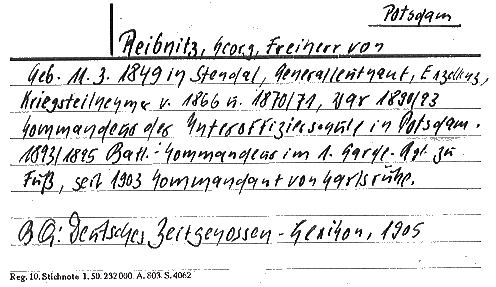 Potsdam
Reibnitz, Georg, Freiherr von
Geb. 11.3.1849 in Stendal, Generalleutnant, Exzellenz,
Kriegsteilnehmer v. 1866 u. 1870/71, war 1890/93
Kommandeur der Unteroffizierschule in Potsdam.
1893/1895 Batl.-Kommandeur im 1. Garde-Rgt. zu
Fuß, seit 1903 Kommandant von Karlsruhe.
BQ: Deutsches Zeitgenossen-Lexikon, 1905
Reg. 10. Stichnote 1. 50. 232000. A. 803. S. 4062